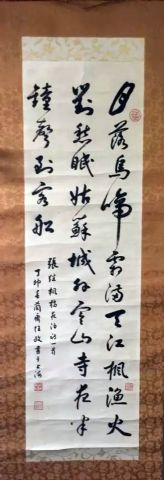 月落烏啼霜滿天江楓漁火
對愁眠姑蘇城外寒山寺夜半
鐘聲到客船
張繼楓橋夜泊詩一首
丁卯